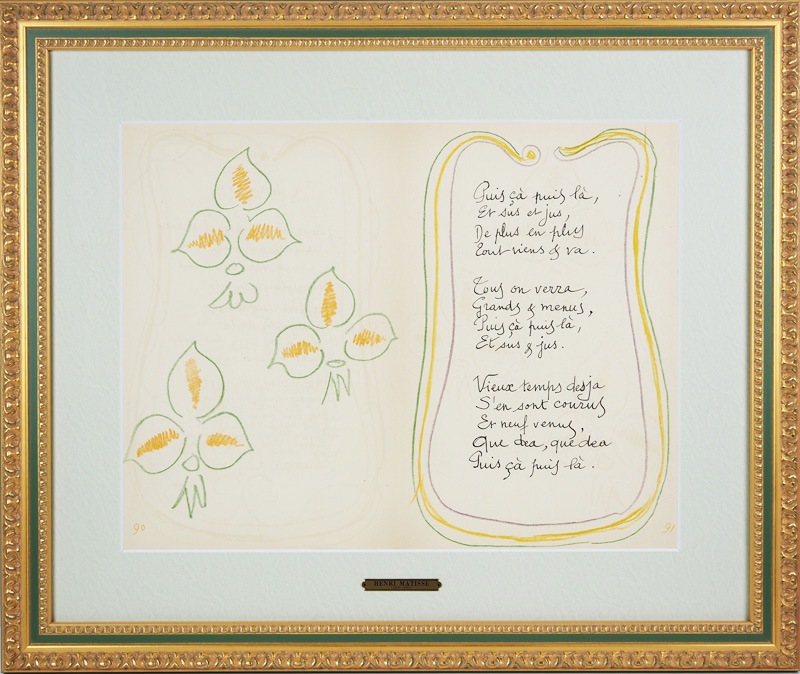 Puis çà puis là,
Et sus et jus,
De plus en plus
Tout viens & va.
Tous on verra,
Grands & menus,
Puis çà puis là,
Et sus & jus.
Vieux temps desja
S'en sont courus
Et neuf venus,
Que dea, que dea
Puis çà puis là.
90
91
HENRI MATISSE